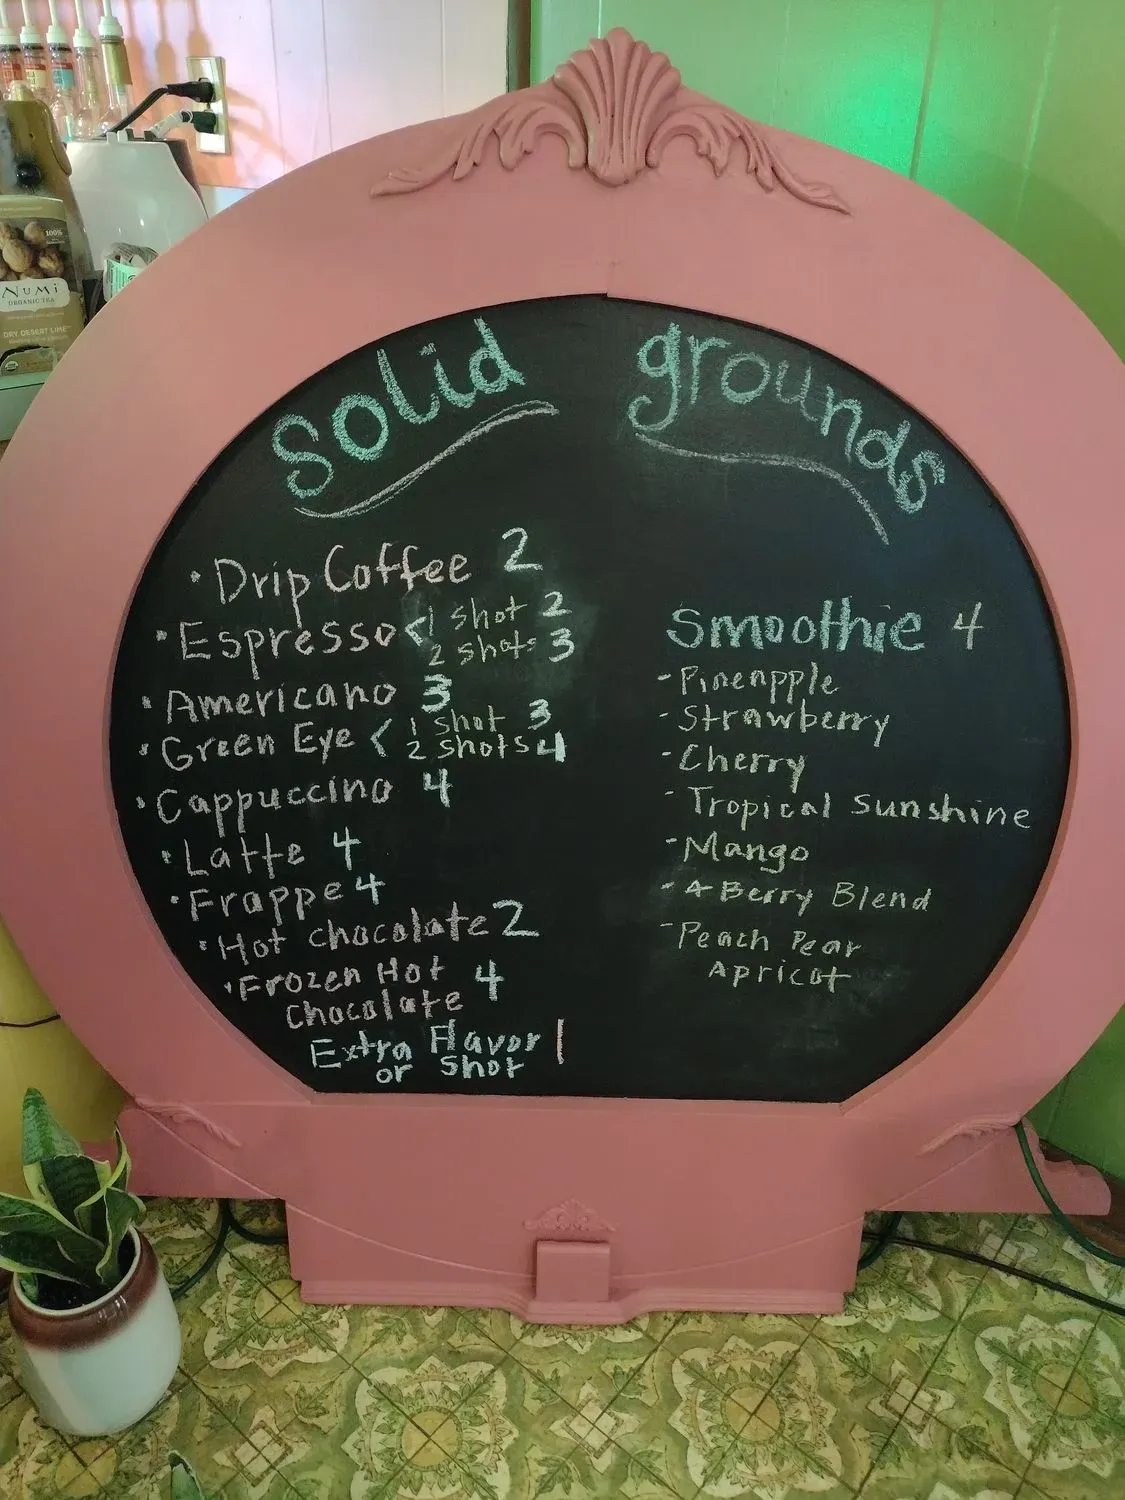 Solid grounds
• Drip Coffee 2
• Espresso < 1 shot 2
2 shots 3
• Americano 3
• Green Eye < 1 shot 3
2 shots 4
• Cappuccino 4
• Latte 4
• Frappe 4
• Hot chocolate 2
• Frozen Hot 4
Chocolate
Extra Flavor 1
or shot
Smoothie 4
- Pineapple
- Strawberry
- Cherry
- Tropical Sunshine
- Mango
- 4 Berry Blend
- Peach Pear
Apricot
100%
NUMI
ORGANIC TEA
DRY DESERT LIME